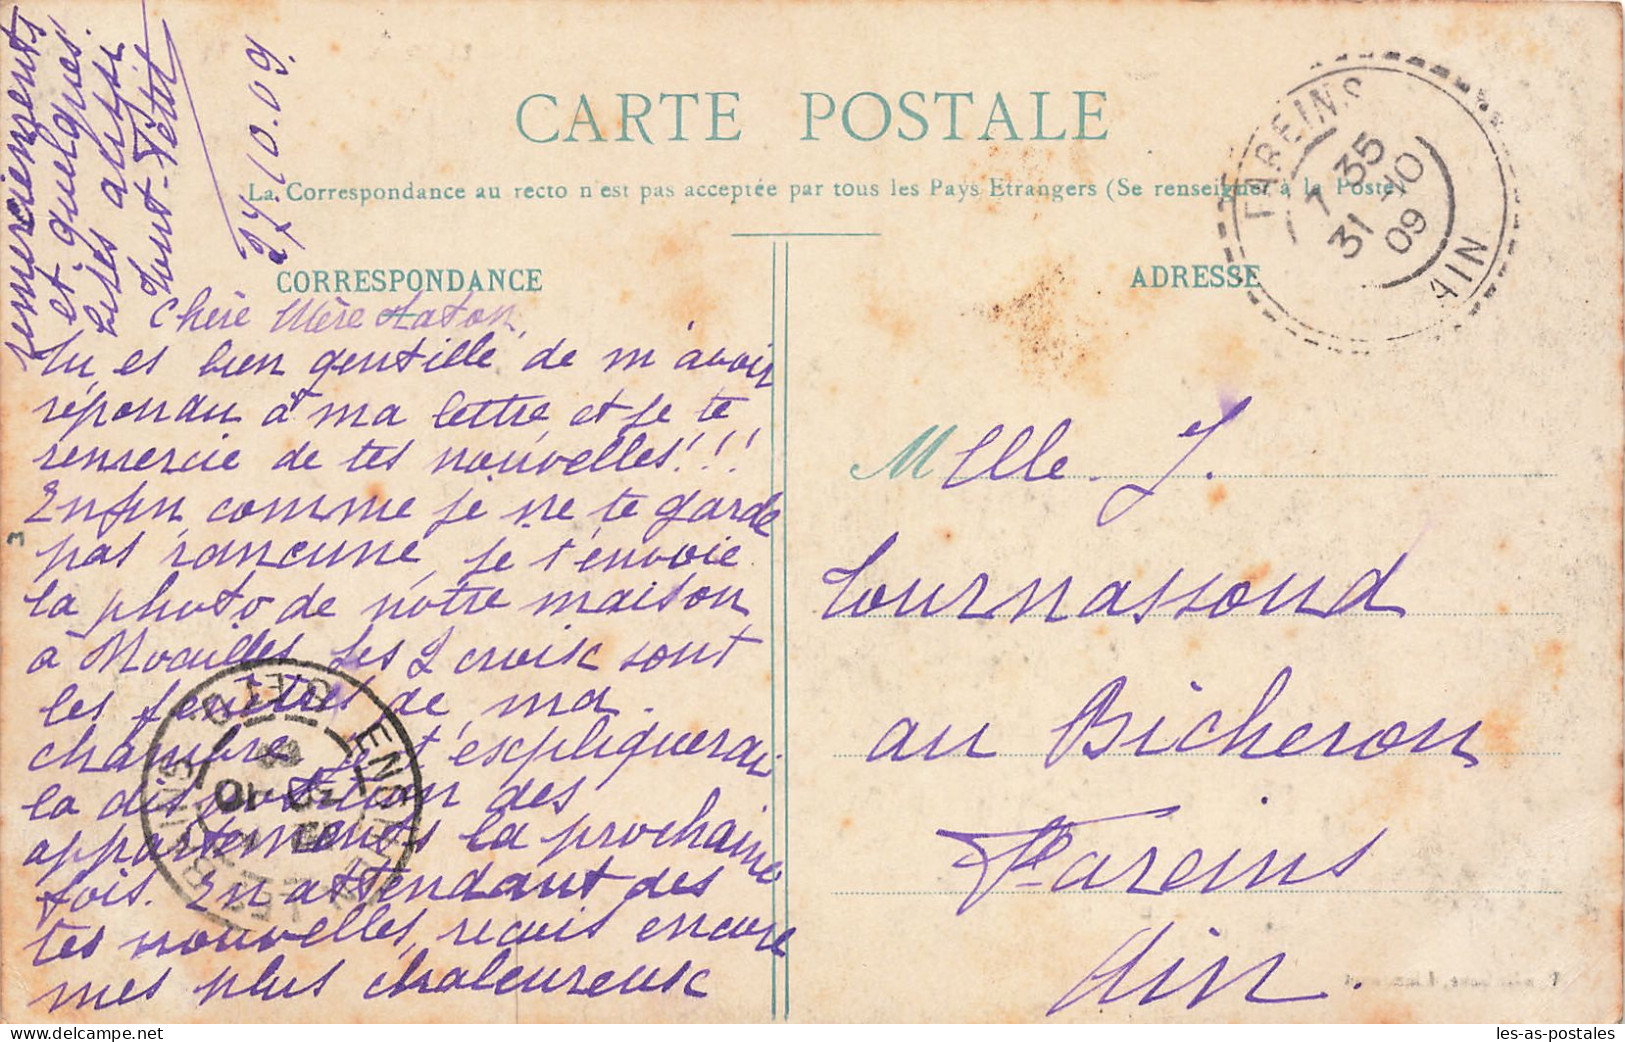 CARTE POSTALE
La Correspondance au recto n'est pas acceptée par tous les Pays Etrangers (Se renseigner à la Poste)
CORRESPONDANCE
ADRESSE
27.10.09.
Chère Mère Taton,
Tu es bien gentille de m'avoir
répondu à ma lettre et je te
remercie de tes nouvelles!!!
Enfin comme je ne te garde
pas rancune, je t'envoie
la photo de notre maison
à Noailles. Les 2 croix sont
les fenêtres de ma
chambre. Je t'expliquerai
la disposition des
appartements la prochaine
fois. En attendant des
tes nouvelles, reçois encore
mes plus chaleureux
remerciements
et quelques
bises aussi
Tout-Petit
Melle J.
Tournassoud
au Bicheron
Fareins
Ain.
FAREINS
7 35
31 -10
09
AIN
ENGHIEN
LES
BAINS
S. ET O.
3
les-as-postales